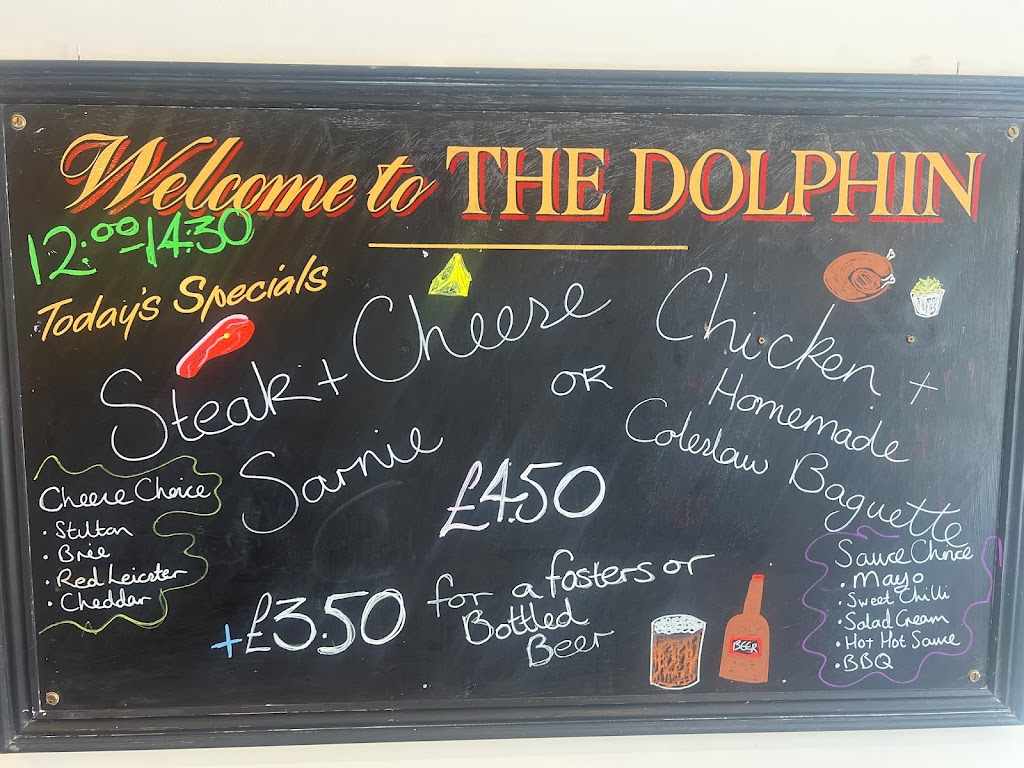 Welcome to THE DOLPHIN
12:00-14:30
Today's Specials
Steak + Cheese
Sarnie
OR
Chicken +
Homemade
Coleslaw Baguette
£4.50
Cheese Choice
· Stilton
· Brie
· Red Leicster
· Cheddar
+£3.50 for a fosters or
Bottled
Beer
BEER
Sauce Choice
· Mayo
· Sweet Chilli
· Salad Cream
· Hot Hot Sauce
· BBQ